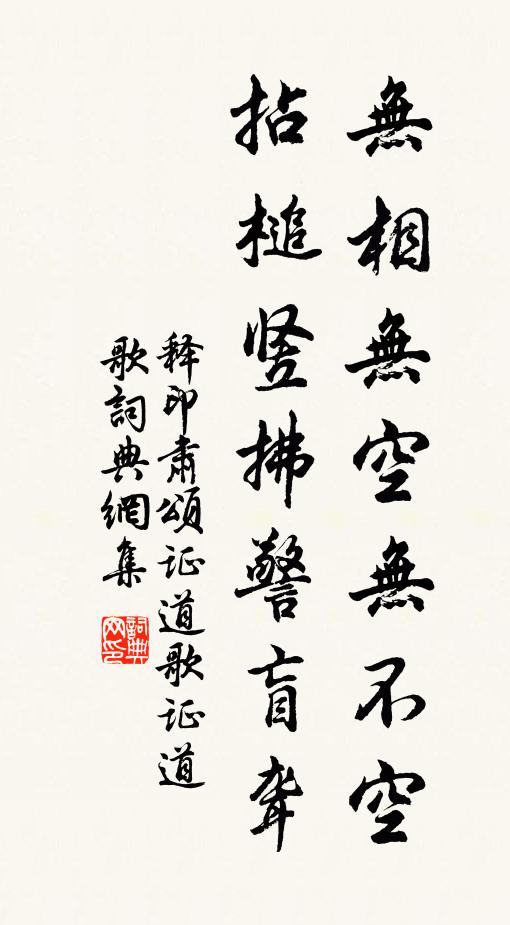 無相無空無不空
拈槌竖拂警盲聋
释印肃頌证道歌证道
歌詞典網集
詞典网印